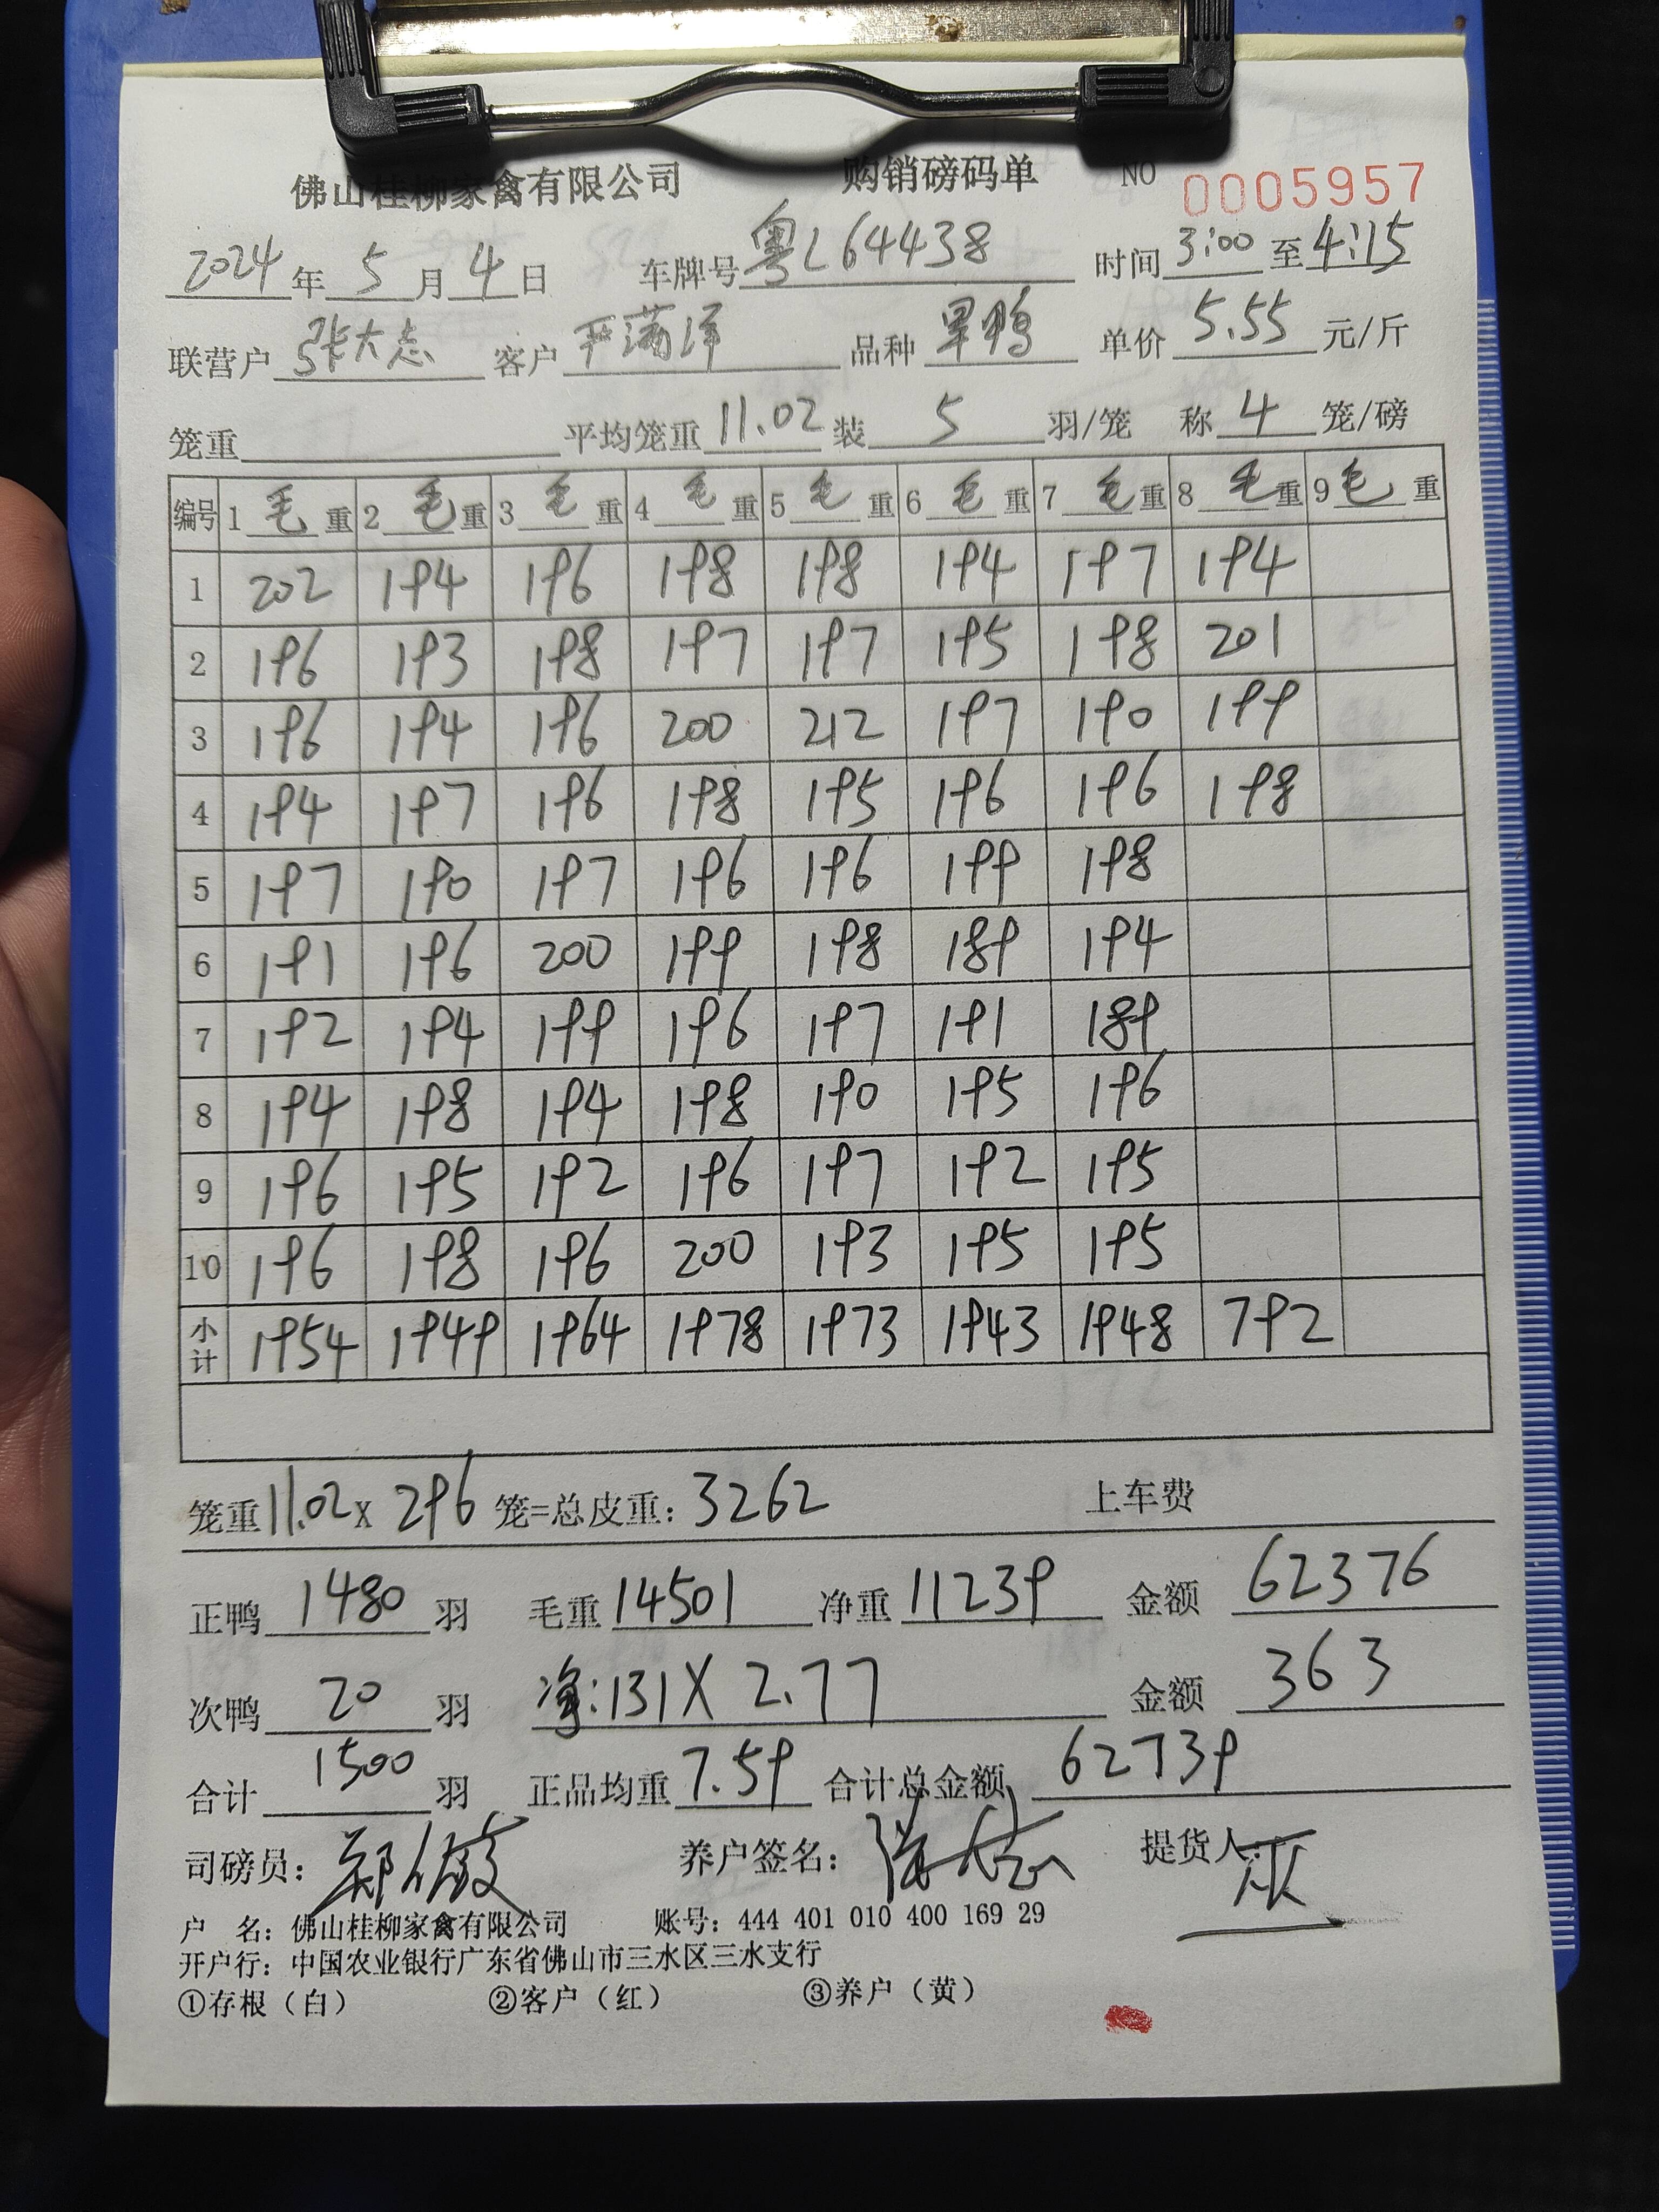 佛山桂柳家禽有限公司 购销磅码单 NO 0005957
2024年5月4日 车牌号粤L64438 时间3:00至4:15
联营户张大志 客户严满洋 品种旱鸭 单价5.55元/斤
笼重 平均笼重11.02装5羽/笼 称4笼/磅
编号 1毛重 2毛重 3毛重 4毛重 5毛重 6毛重 7毛重 8毛重 9毛重
1 202 194 196 198 198 194 197 194
2 196 193 198 197 197 195 198 201
3 196 194 196 200 212 197 190 199
4 194 197 196 198 195 196 196 198
5 197 190 197 196 196 199 198
6 191 196 200 199 198 189 194
7 192 194 199 196 197 191 189
8 194 198 194 198 190 195 196
9 196 195 192 196 197 192 195
10 196 198 196 200 193 195 195
小计 1954 1949 1964 1978 1973 1943 1948 792
笼重11.02X296笼=总皮重:3262 上车费
正鸭1480羽 毛重14501 净重11239 金额62376
次鸭20羽 净:131X2.77 金额363
合计1500羽 正品均重7.59 合计总金额62739
司磅员: 养户签名: 提货人:
户 名: 佛山桂柳家禽有限公司 账号: 444 401 010 400 169 29
开户行: 中国农业银行广东省佛山市三水区三水支行
①存根(白) ②客户(红) ③养户(黄)